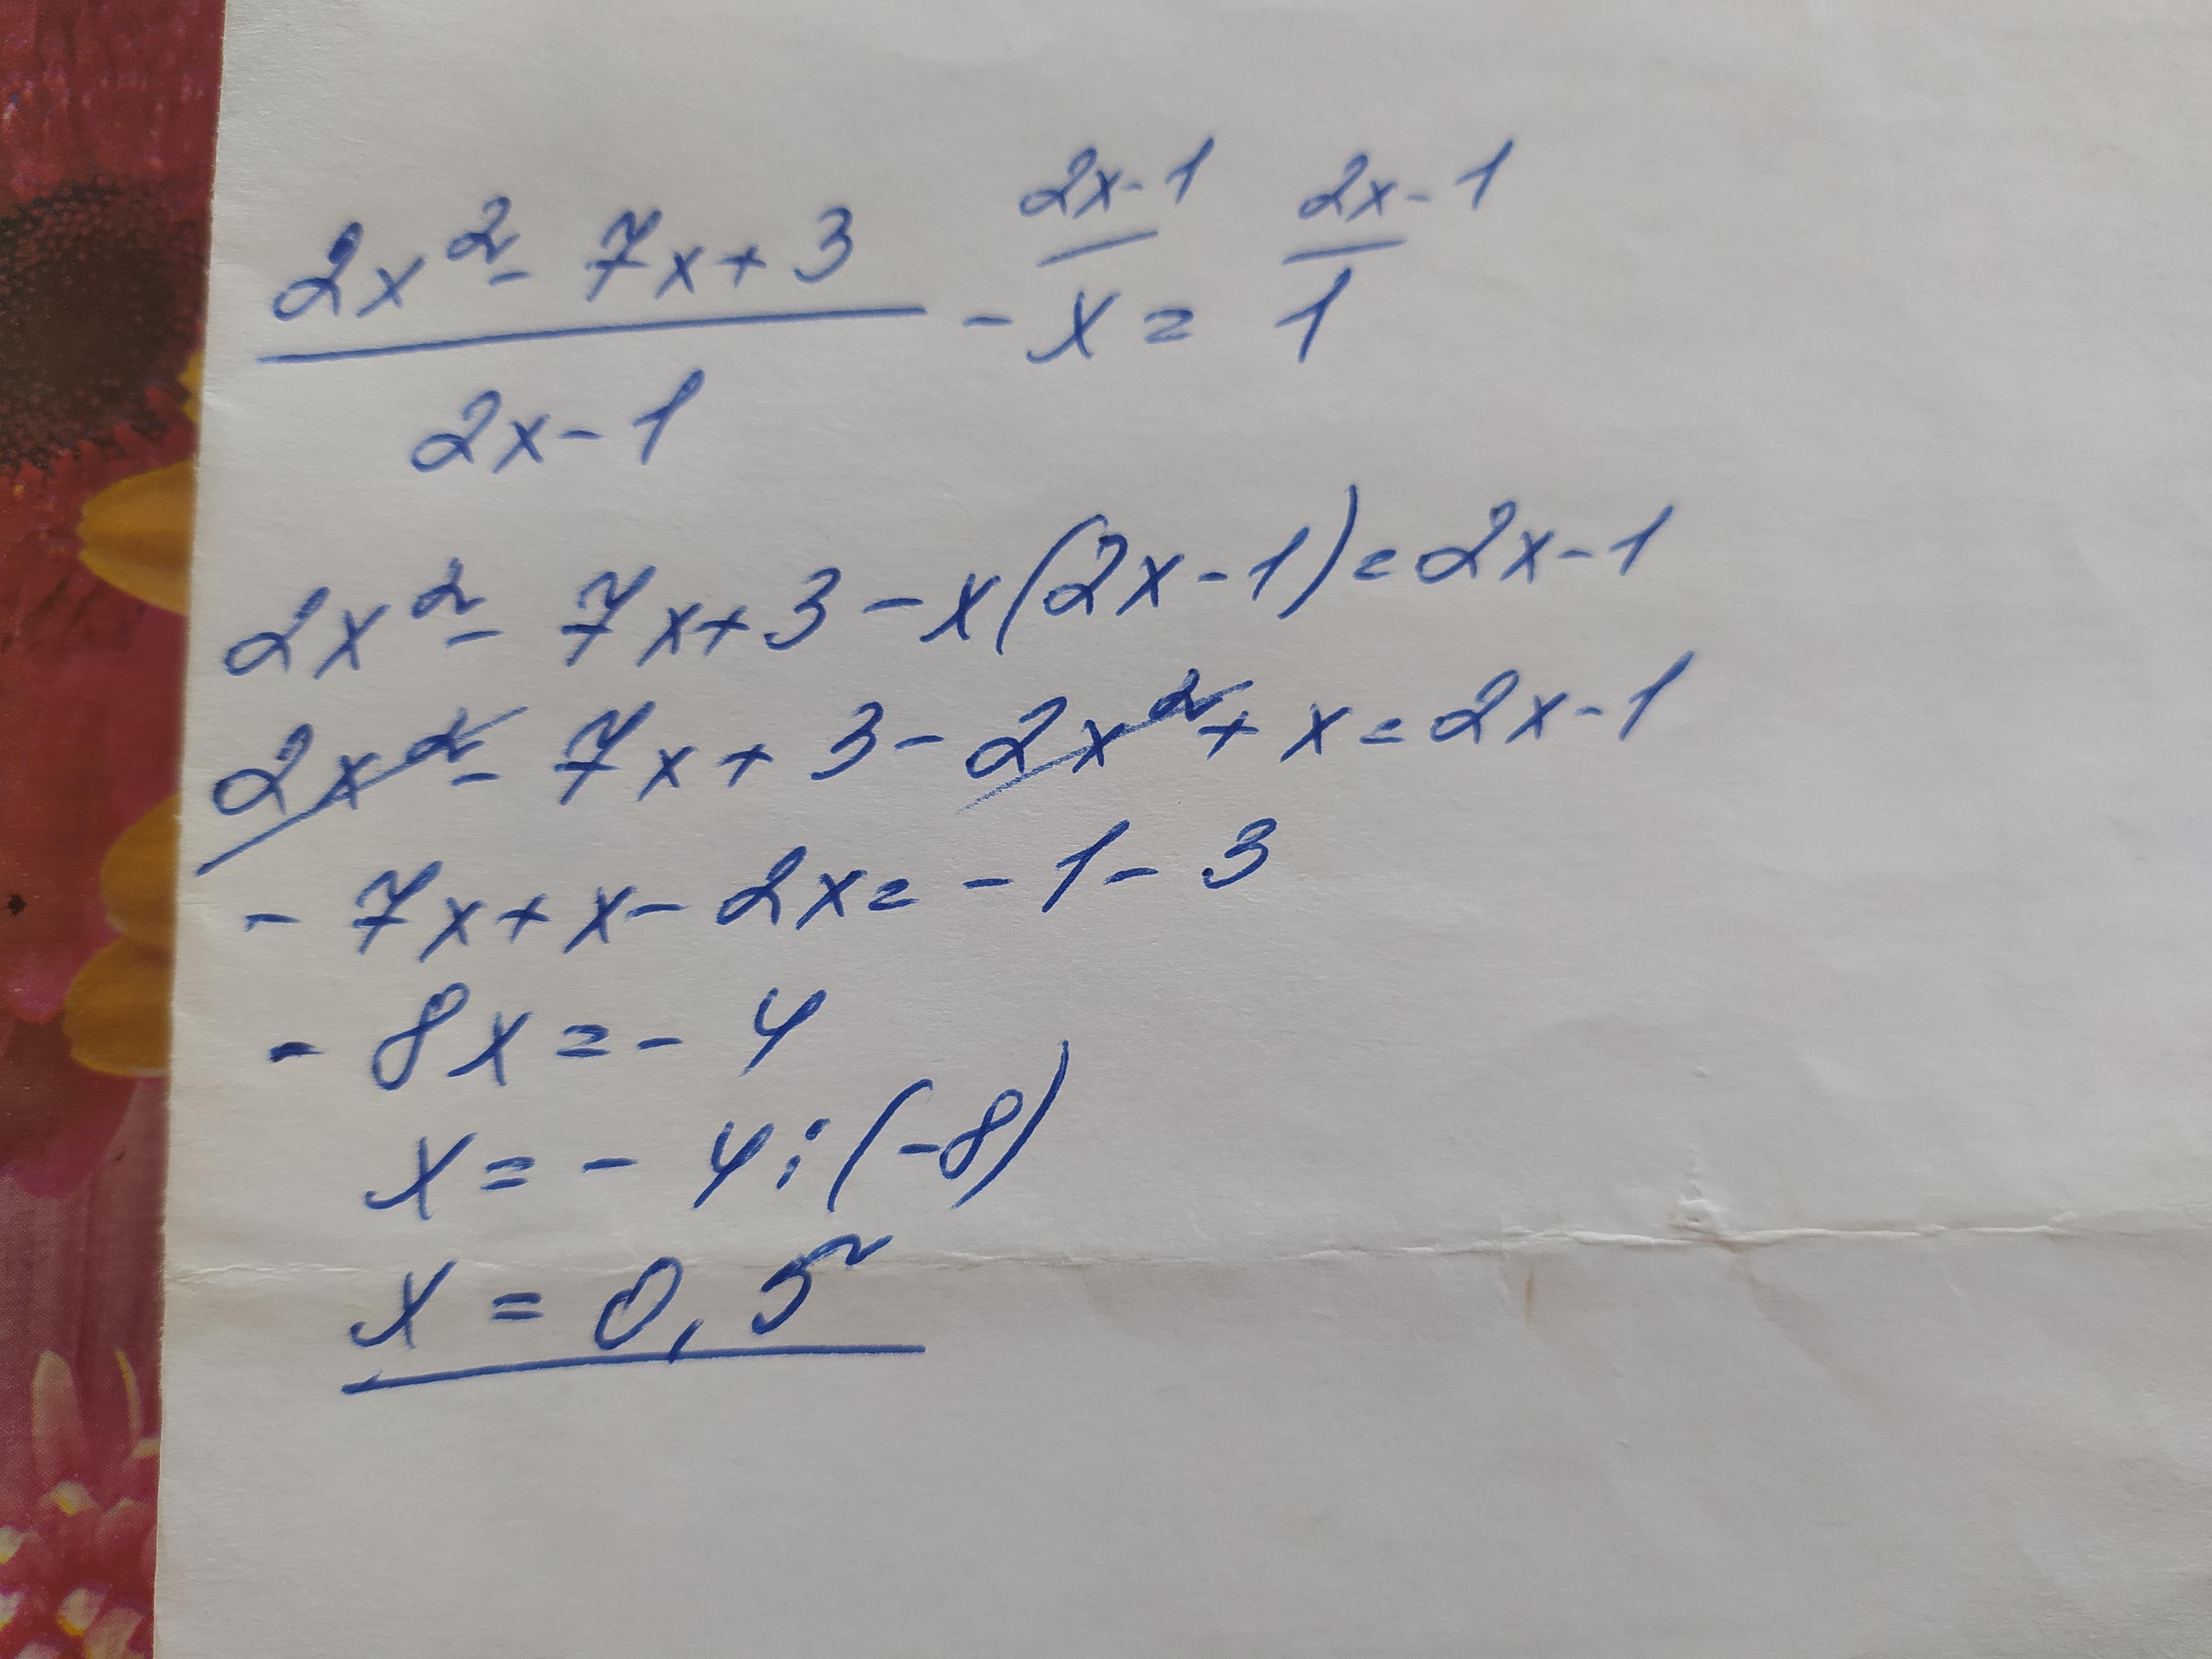 2x² - 7x + 3 / 2x - 1 - x = 1
2x - 1 2x - 1
2x² - 7x + 3 - x(2x - 1) = 2x - 1
2x² - 7x + 3 - 2x² + x = 2x - 1
- 7x + x - 2x = - 1 - 3
- 8x = - 4
x = - 4 : (-8)
x = 0,5